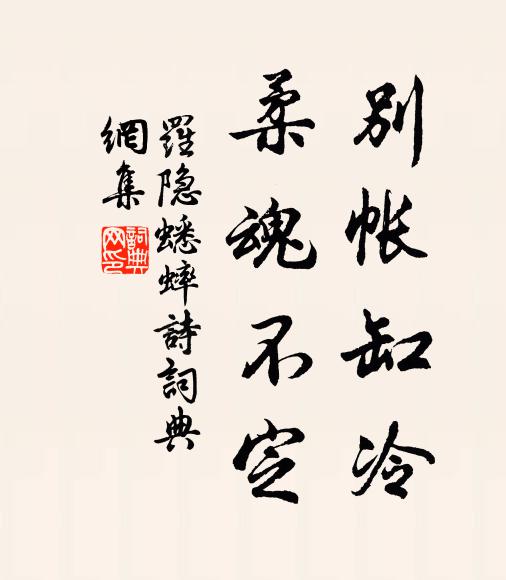 別帳缸冷
柔魂不定
羅隐蟋蟀詩詞典
網集
詞典
网印